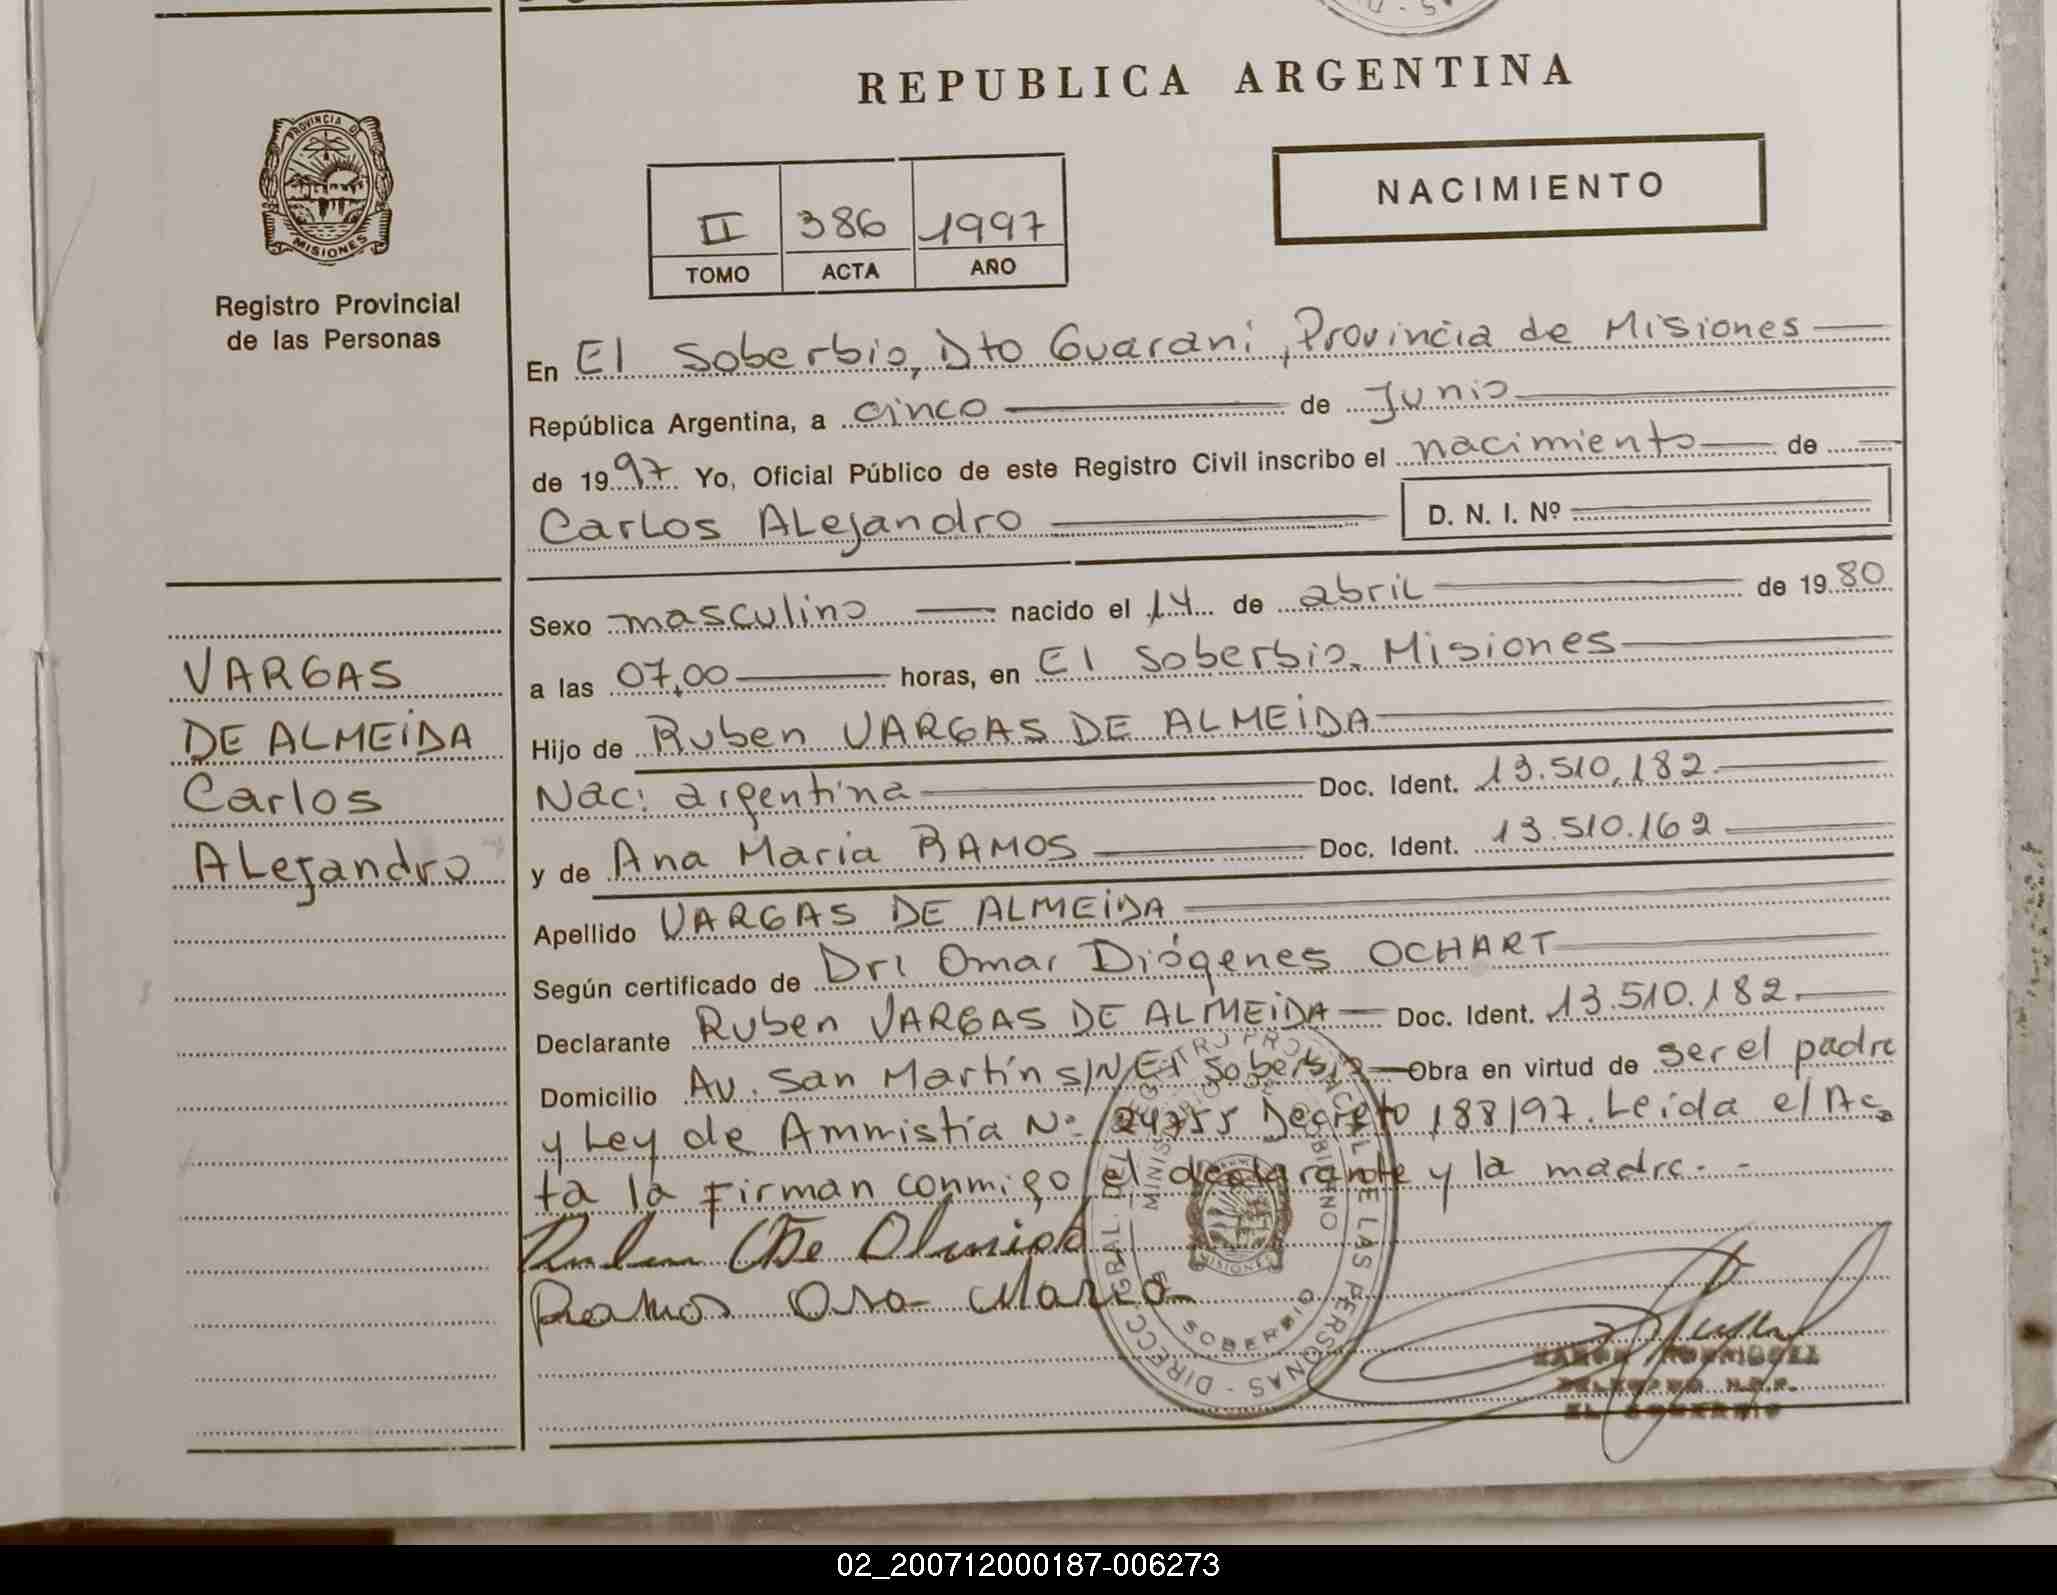 REPUBLICA ARGENTINA
NACIMIENTO
PROVINCIA DE
MISIONES
Registro Provincial
de las Personas
II 386 1997
TOMO ACTA AÑO
En El Soberbio, Dto Guarani, Provincia de Misiones
República Argentina, a cinco de Junio
de 1997 Yo, Oficial Público de este Registro Civil inscribo el nacimiento de
Carlos Alejandro D. N. I. Nº
Sexo masculino nacido el 14 de abril de 1980
a las 07,00 horas, en El Soberbio, Misiones
Hijo de Ruben VARGAS DE ALMEIDA
Nac: argentina Doc. Ident. 13.510.182
y de Ana Maria RAMOS Doc. Ident. 13.510.162
Apellido VARGAS DE ALMEIDA
Según certificado de Dr: Omar Diógenes OCHART
Declarante Ruben VARGAS DE ALMEIDA Doc. Ident. 13.510.182
Domicilio Av. San Martín S/N El Soberbio Obra en virtud de ser el padre
y Ley de Ammistía Nº 24755 Decreto 188/97. Leida el Ac
ta la firman conmigo el declarante y la madre.
VARGAS
DE ALMEIDA
Carlos
Alejandro
Ruben De Almeida
Ramos Ana Maria
DIRECC. GRAL. DEL REGISTRO PROVINCIAL DE LAS PERSONAS
MINISTERIO DE GOBIERNO
MISIONES
EL SOBERBIO
RAMON RODRIGUEZ
DELEGADO R.P.P.
EL SOBERBIO
02_200712000187-006273